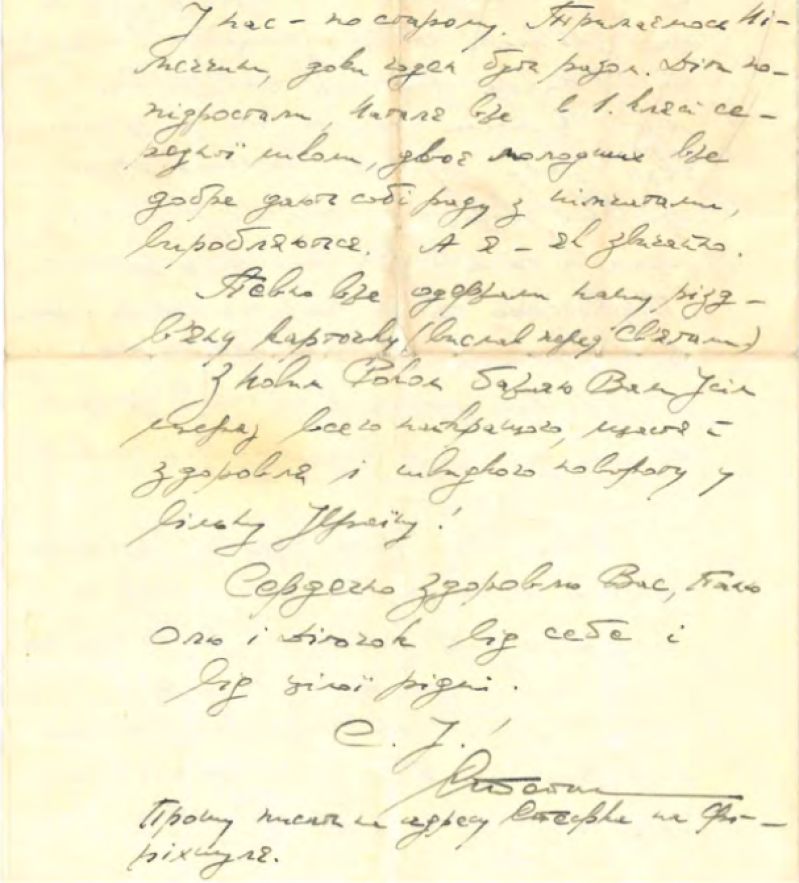 У нас – по старому. Тримаємось Ні-
меччини, доки годен бути разом. Діти по-
підростали, Наталя вже в 1. клясі се-
редньої школи, двоє молодших вже
добре дають собі раду з німчатами,
виробляються. А я – як звичайно.
Певно вже одержали нашу різд-
вяну карточку (вислав перед Святами)
З Новим Роком бажаю Вам Усім
ще раз всего найкращого, щастя і
здоровля і швидкого повороту у
вільну Україну!
Сердечно здоровлю Вас, Паню
Олю і Діточок від себе і
від цілої рідні.
С. У.!
Прошу писати на адресу Стефка на